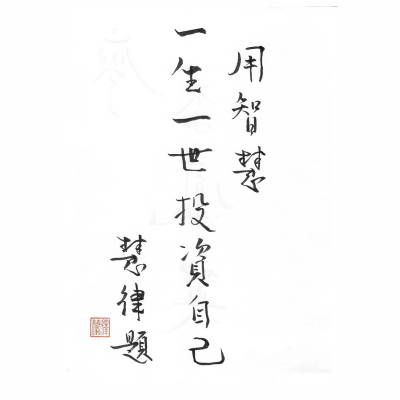 用智慧
一生一世投資自己
慧律題